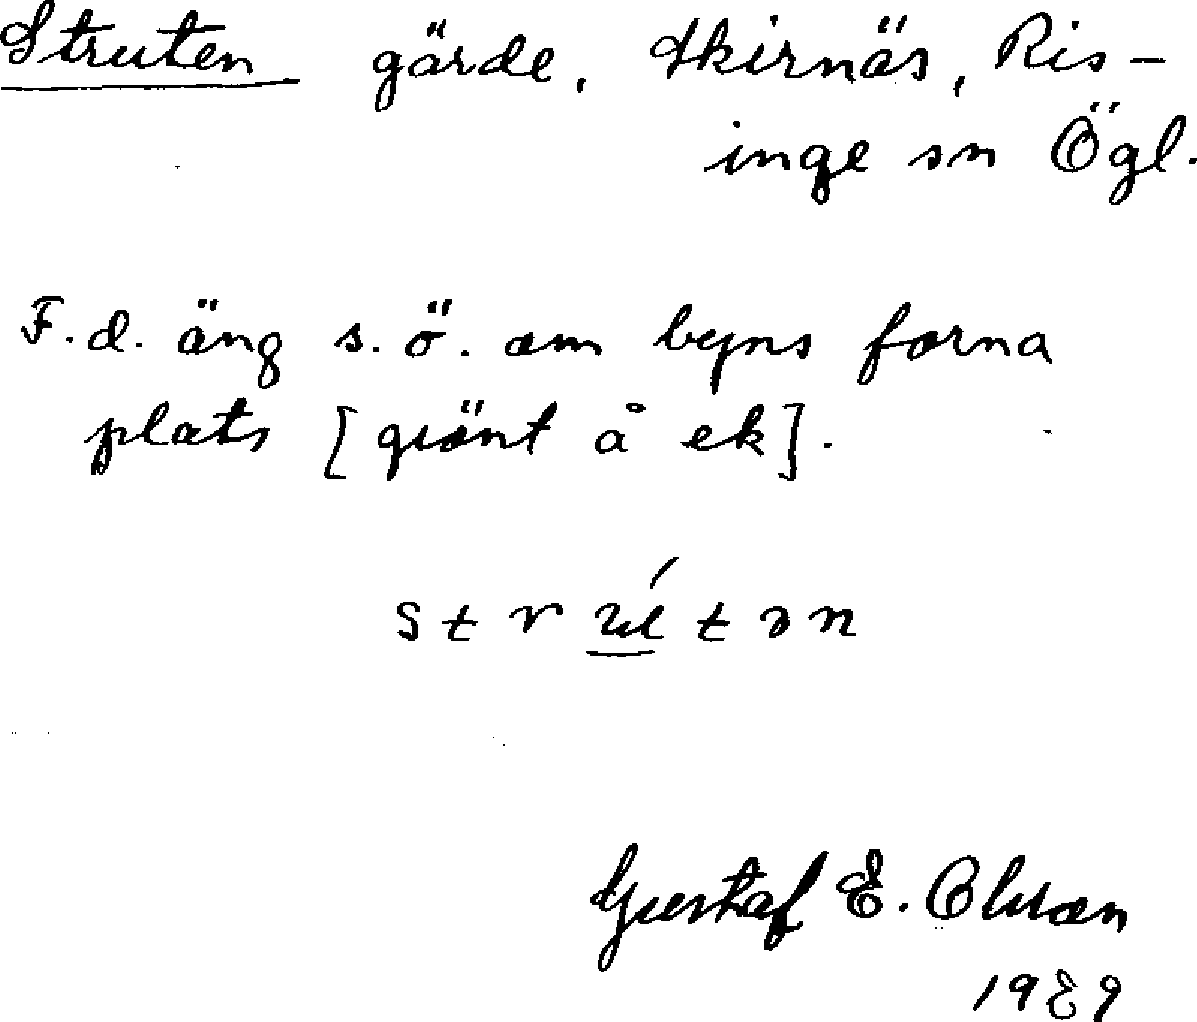 Struten gärde, Skirnäs, Ris-
inge sn Ögl.
F.d. äng s.ö. om byns forna
plats [grönt å ek].
strútən
Gustaf E. Olsson
1929